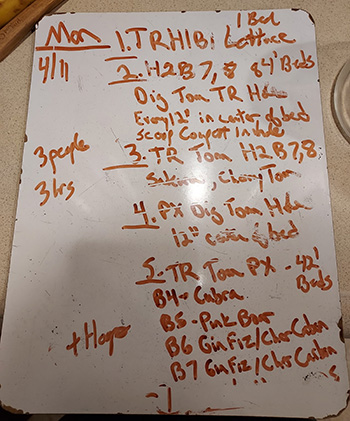 Mon
4/11
1 Bed
1. TRH1B1 Lettuce
2. H2B7,8 84' Beds
Dig Tom TR Holes
Every 12" in center of bed
Scoop Compost In hole
3 people
3 hrs
3. TR Tom H2B7,8
Sakura, Cherry Tom
4. PX Dig Tom Holes
12" center of bed
5. TR Tom PX - 42' Beds
B4 - Cobra
B5 - Pink Boar
B6 Gin Fiz/Cher Carbon
B7 Gin Fiz/Cher Carbon